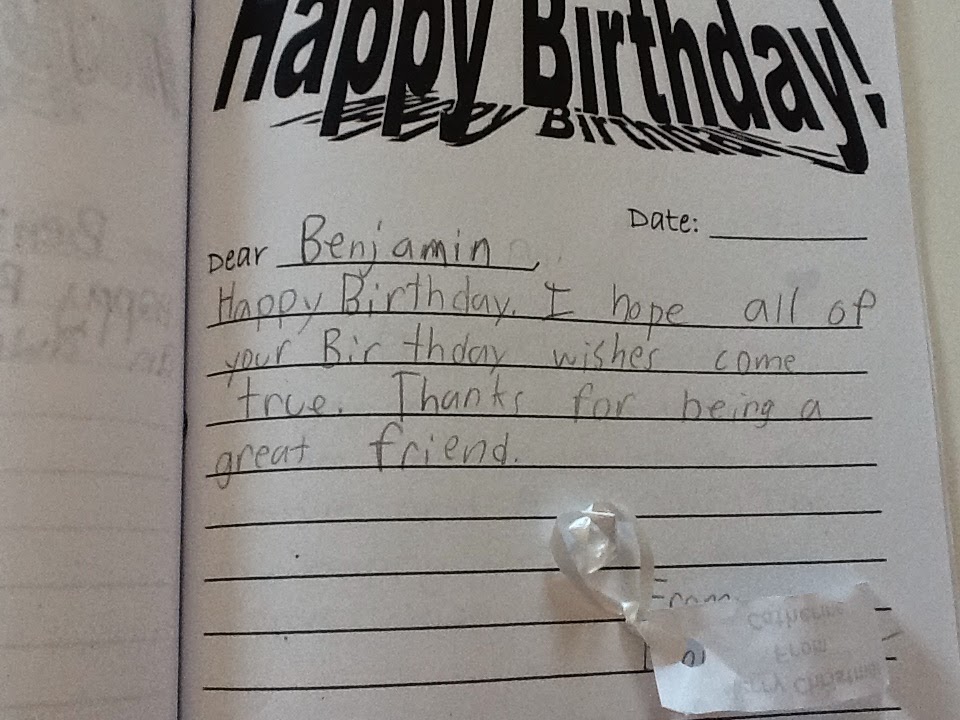 Happy Birthday!
Date:
Dear Benjamin,
Happy Birthday. I hope all of
your Birthday wishes come
true. Thanks for being a
great friend.
From
Catherine
From
Merry Christmas